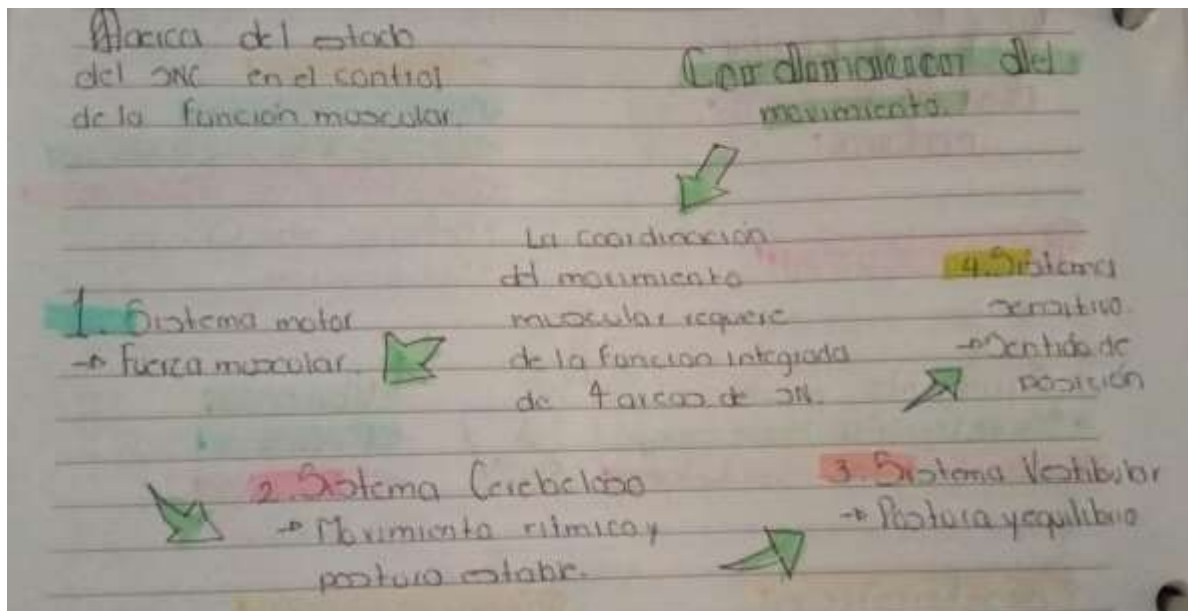 del estado
del SNC en el control
de la función muscular.
del
movimiento.
La coordinación
del movimiento
muscular requiere
de la función integrada
de 4 areas de SN.
1. Sistema motor
→ Fuerza muscular.
2. Sistema Cerebeloso
→ Movimiento ritmico y
postura estable.
3. Sistema Vestibular
→ Postura y equilibrio
4. Sistema
sensitivo.
→ Sentido de
posición